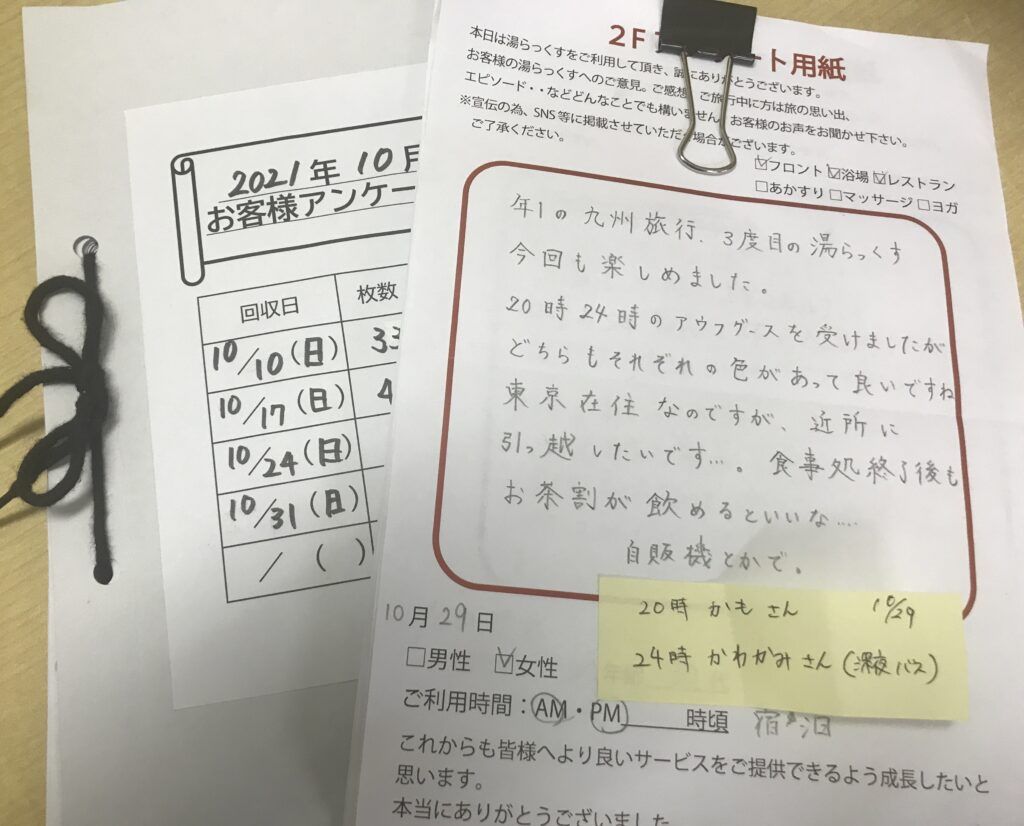 2021年 10月
お客様アンケー
回収日 枚数
10/10(日) 33
10/17(日) 4
10/24(日)
10/31(日)
/ ( )
2F ート用紙
本日は湯らっくすをご利用して頂き、誠にありがとうございます。
お客様の湯らっくすへのご意見。ご感想 ご旅行中に方は旅の思い出、
エピソード・・などどんなことでも構いません。お客様のお声をお聞かせ下さい。
※宣伝の為、SNS等に掲載させていただ 場合がございます。
ご了承ください。
☑フロント ☑浴場 ☑レストラン
□あかすり □マッサージ □ヨガ
年1の九州旅行、3度目の湯らっくす
今回も楽しめました。
20時24時のアウフグースを受けましたが
どちらもそれぞれの色があって良いですね
東京在住なのですが、近所に
引っ越したいです…。食事処終了後も
お茶割が飲めるといいな….
自販機とかで。
20時 かもさん 10/29
24時 かわかみさん(深夜バス)
10月29日
□男性 ☑女性
ご利用時間:AM・PM 時頃 宿泊
これからも皆様へより良いサービスをご提供できるよう成長したいと
思います。
本当にありがとうございました